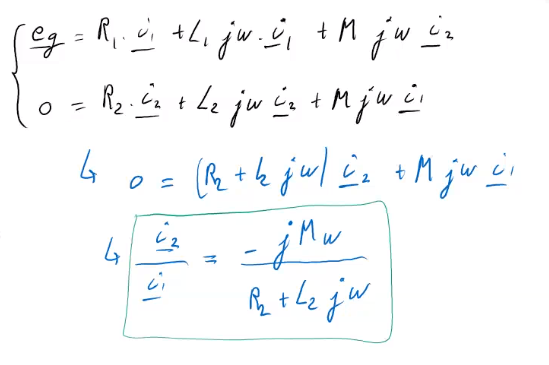 e̲g̲ = R₁. i̲₁ + L₁ jw. i̲₁ + M jw i̲₂
0 = R₂. i̲₂ + L₂ jw i̲₂ + M jw i̲₁
↳ 0 = (R₂ + L₂ jw) i̲₂ + M jw i̲₁
↳ i̲₂ / i̲₁ = - jMw / R₂ + L₂ jw